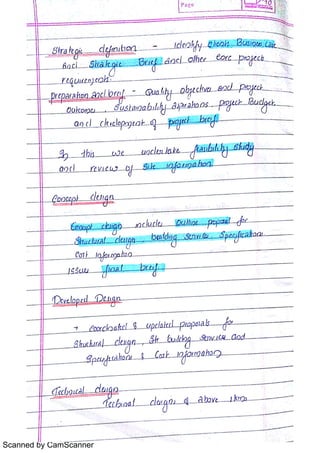 Page
Strategic definition - identify clients Business Case
and Strategic Brief and other core project
requirements.
Preparation and brief - Quality objective and project
outcomes, sustainability aspirations, project Budget,
and development of project brief
In this we undertake feasibility study
and review of Site information
Concept design
Concept design includes Outline proposal for
Structural design, building services, Specifications
Cost information
issue final brief
Developed Design
→ coordinated & updated proposals for
Structural design, building services and
Specifications & Cost information
Technical design
Technical designs of above items
Scanned by CamScanner